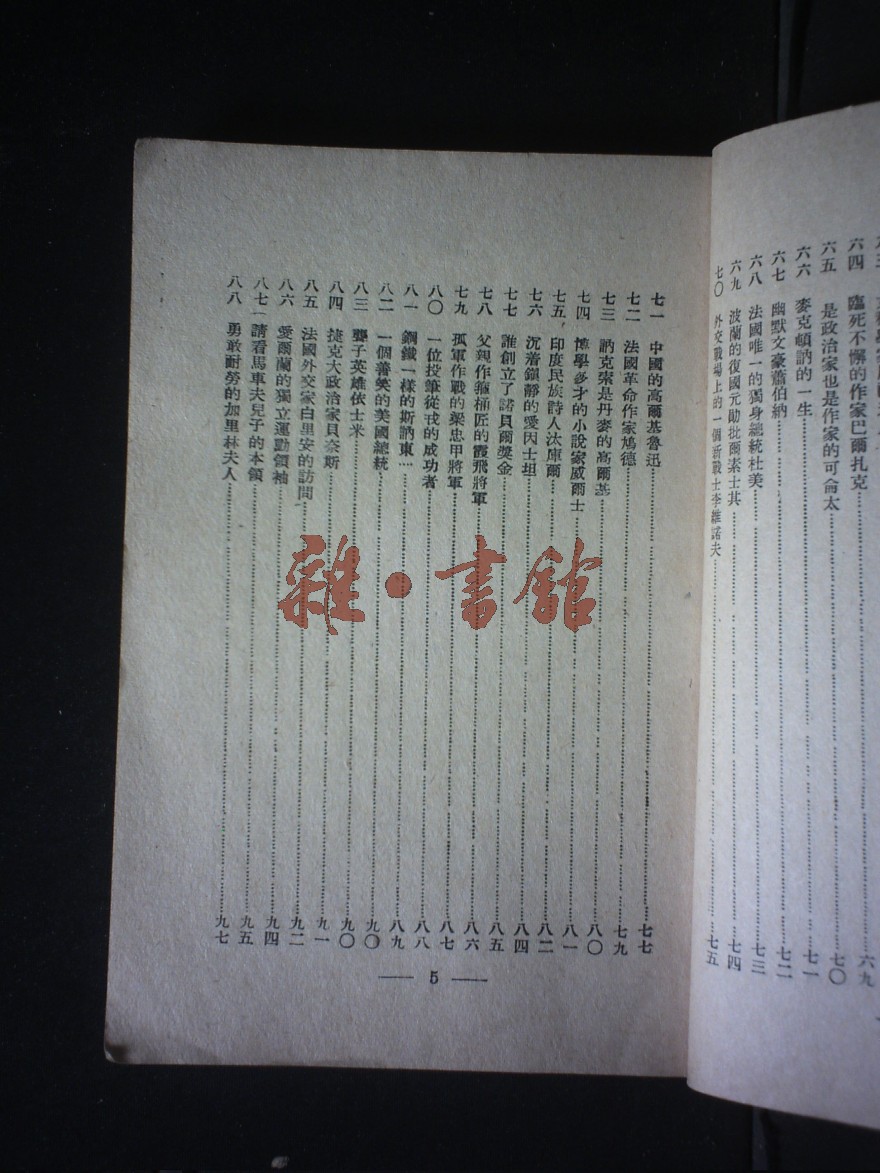 六四 臨死不懈的作家巴爾扎克 六九
六五 是政治家也是作家的可侖太 七〇
六六 麥克頓訥的一生 七一
六七 幽默文豪蕭伯納 七二
六八 法國唯一的獨身總統杜美 七三
六九 波蘭的復國元勛批爾素士其 七四
七〇 外交戰場上的一個新戰士李維諾夫 七五
七一 中國的高爾基魯迅 七七
七二 法國革命作家鳩德 七九
七三 訥克索是丹麥的高爾基 八〇
七四 博學多才的小說家威爾士 八一
七五 印度民族詩人汰庫爾 八二
七六 沉着鎮靜的愛因士坦 八四
七七 誰創立了諾貝爾獎金 八五
七八 父親作箍桶匠的霞飛將軍 八六
七九 孤軍作戰的梁忠甲將軍 八七
八〇 一位投筆從戎的成功者 八八
八一 鋼鐵一樣的斯訥東 八九
八二 一個善笑的美國總統 九〇
八三 聾子英雄依士米 九〇
八四 捷克大政治家貝奈斯 九一
八五 法國外交家白里安的訪問 九二
八六 愛爾蘭的獨立運動領袖 九四
八七 請看馬車夫兒子的本領 九五
八八 勇敢耐勞的加里林夫人 九七
— 5 —
雜·書館